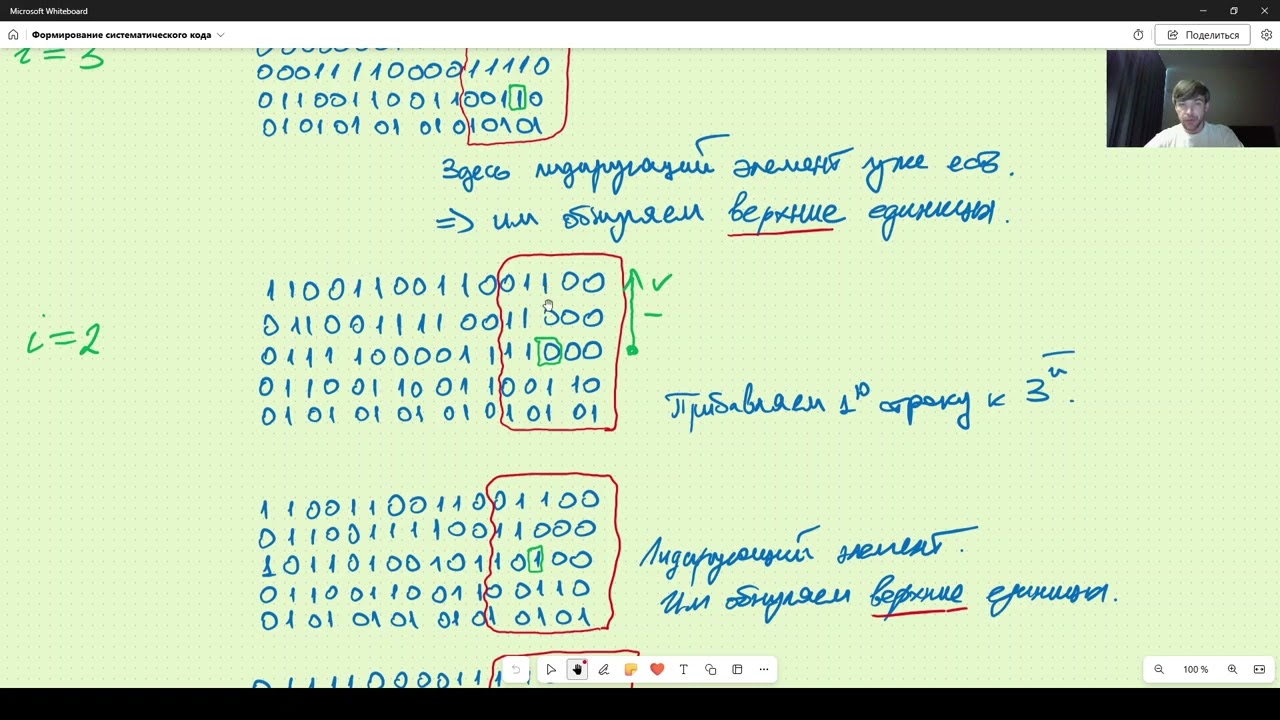 Microsoft Whiteboard
Формирование систематического кода
Поделиться
i = 3
0001111000011110
0110011001100110
0101010101010101
Здесь лидирующий элемент уже есть.
=> им обнуляем верхние единицы.
1100110011001100
0110011110011000
i = 2
0111100001111000
0110011001100110
Прибавляем 1ю строку к 3й.
0101010101010101
1100110011001100
0110011110011000
Лидирующий элемент.
1011010010110100
0110011001100110
Им обнуляем верхние единицы.
0101010101010101
100 %